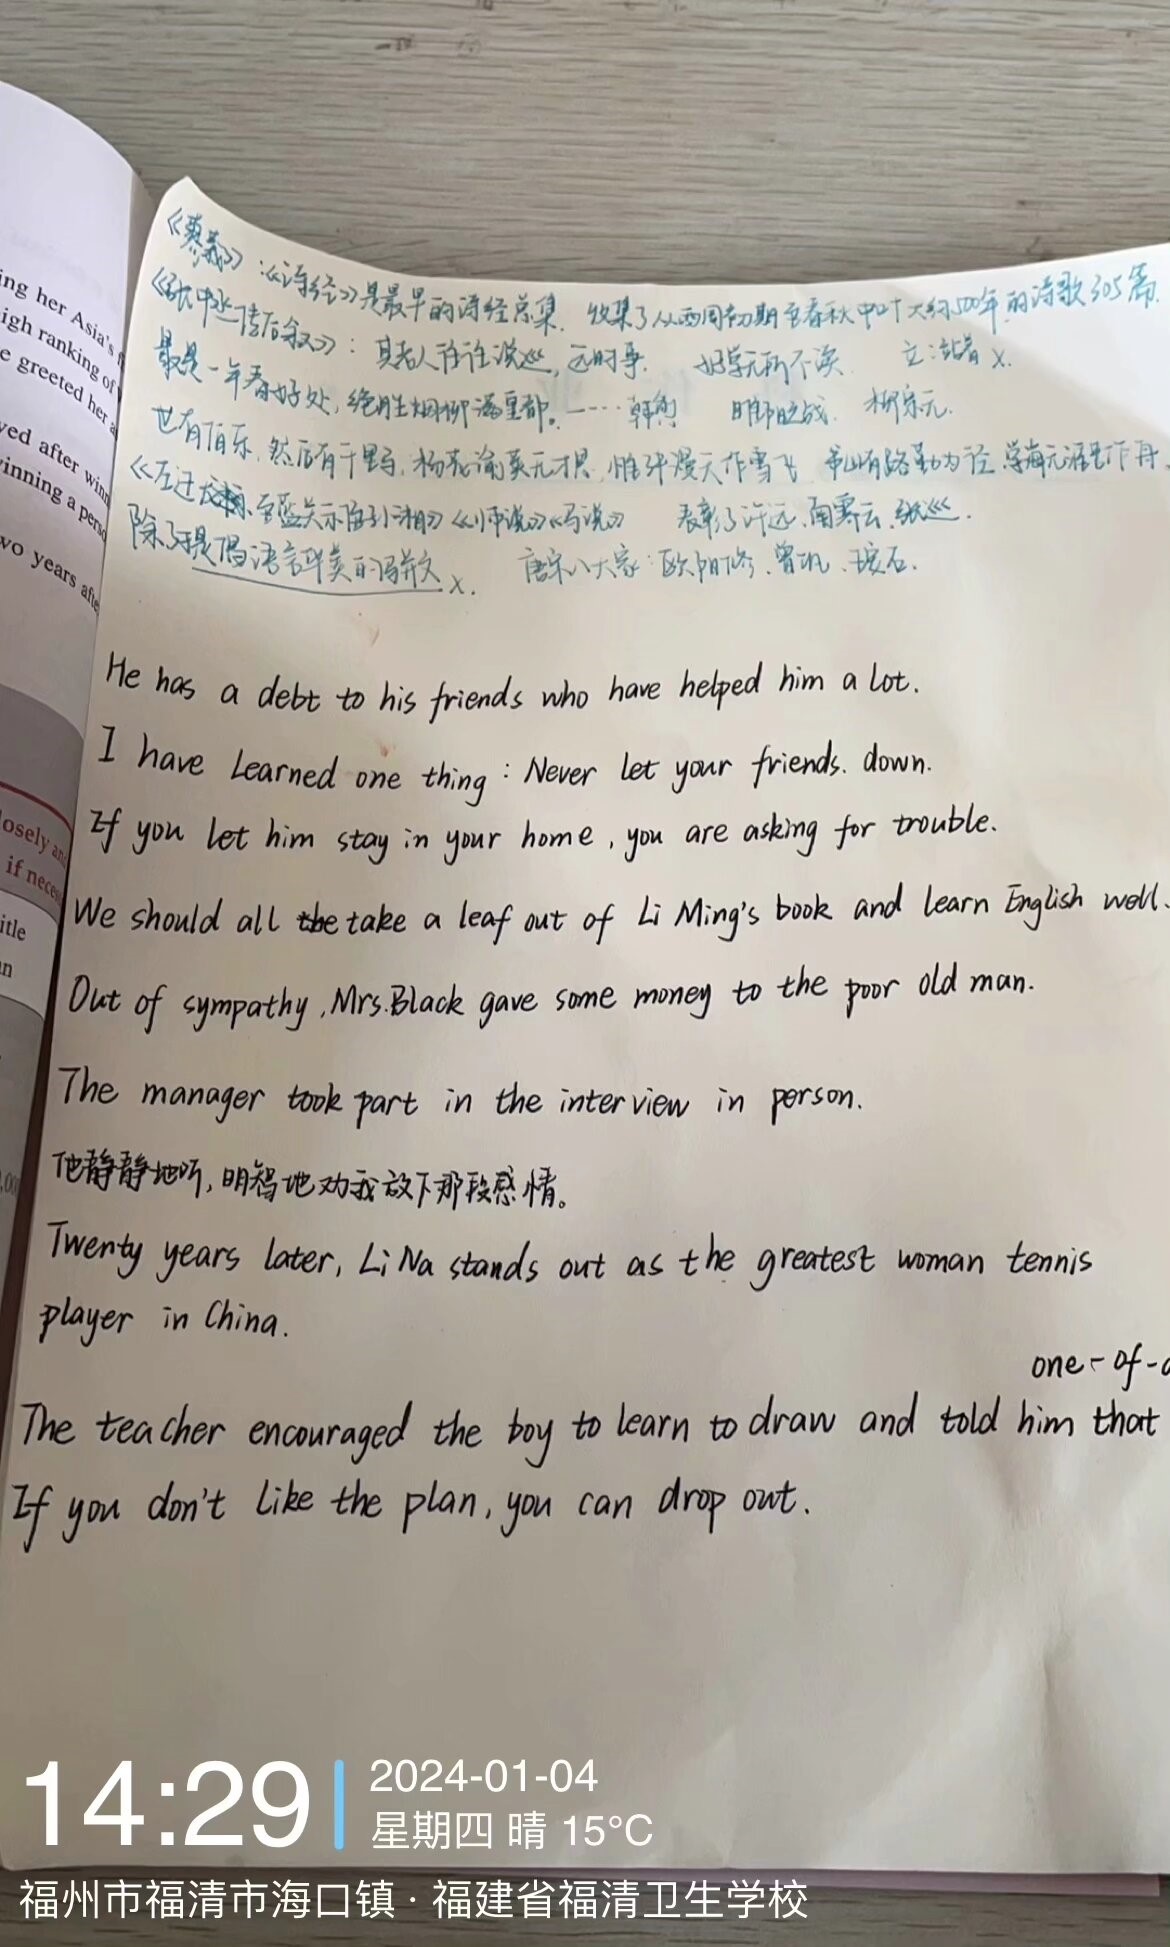 ing her Asia's
igh ranking of
e greeted her a
yed after winn
inning a perso
wo years afte
losely and
if neces
itle
n
《蓼莪》:《诗经》是最早的诗经总集. 收集了从西周初期至春秋中叶大约500年的诗歌305篇.
《张中丞传后叙》: 其老人往往说巡,远时事. 好学无所不读. 立 x.
最是一年春好处,绝胜烟柳满皇都.——韩愈 睢阳之战. 柳宗元.
世有伯乐,然后有千里马,杨花榆荚无才思,惟解漫天作雪飞 书山有路勤为径,学海无涯苦作舟.
《左迁至蓝关示侄孙湘》《师说》《马说》 表彰了许远,南霁云,张巡.
除了提倡语言华美的骈文 x. 唐宋八大家:欧阳修、曾巩、王安石.
He has a debt to his friends who have helped him a lot.
I have learned one thing: Never let your friends. down.
If you let him stay in your home, you are asking for trouble.
We should all the take a leaf out of Li Ming's book and learn English well.
Out of sympathy, Mrs. Black gave some money to the poor old man.
The manager took part in the interview in person.
他静静地听,明智地劝我放下那段感情。
Twenty years later, Li Na stands out as the greatest woman tennis
player in China.
one-of-a
The teacher encouraged the boy to learn to draw and told him that
If you don't like the plan, you can drop out.
14:29
2024-01-04
星期四 晴 15°C
福州市福清市海口镇·福建省福清卫生学校